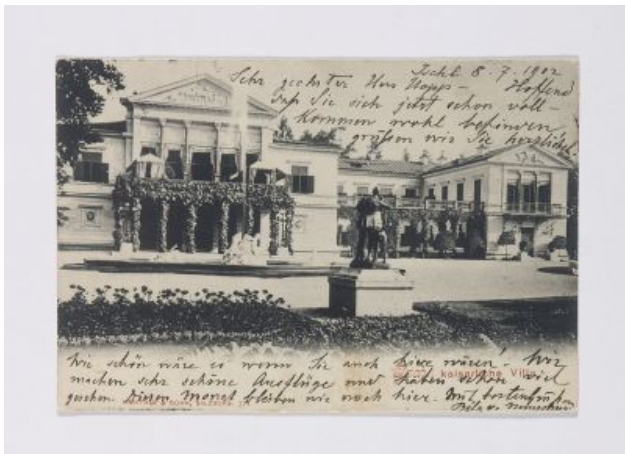 Ischl 8.7.1902
Sehr geehrter Herr Hopps - Hoffend
daß Sie sich jetzt schon voll-
kommen wohl befinden
grüßen wir Sie herzlichst.
Wie schön wäre es wenn Sie auch hier wären! Wir
kaiserliche Villa.
machen sehr schöne Ausflüge und haben schon viel
gesehen. Diesen Monat bleiben wir noch hier. Mit besten